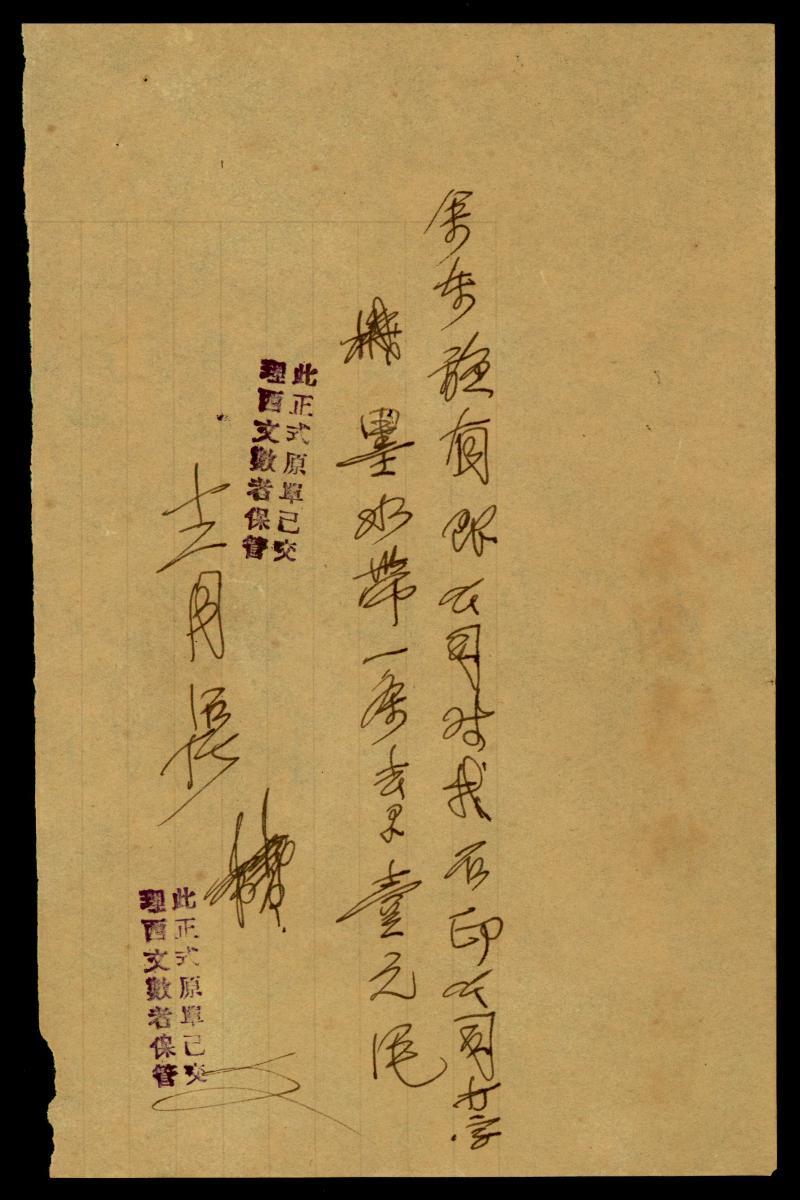 余东旋有限公司对我石印公司打字
機墨水帶一条去艮壹元
此正式原單已交
理西文數者保管
十二月
此正式原單已交
理西文數者保管